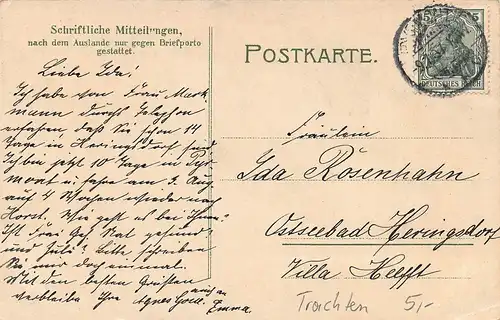 Schriftliche Mitteilungen,
nach dem Auslande nur gegen Briefporto
gestattet.
POSTKARTE.
5 5
DEUTSCHES REICH
Liebe Ida!
Ich habe von Frau Mark
mann durch Telephon
erfahren, daß Sie schon 14
Tage in Heringsdorf sind
Ich bin jetzt 10 Tage in Pyr
mont u. fahre am 3. Aug
auf 4 Wochen wieder nach
Horst. Wie geht es bei Ihnen?
Ist Frau Geh. Rat gesund?
und Züli? Bitte schreiben
Sie mir doch einmal.
Mit den besten Grüßen
verbleibe Ihre Agnes
auch an
Emma.
Fräulein
Ida Rosenhahn
Ostseebad Heringsdorf
Villa Helfft
Trachten 5,-